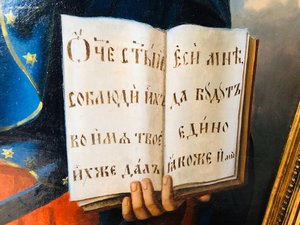 О҃ЧЕ СТ҃ЫЙ
СОБЛЮДИ ИХЪ
ВО ИМЯ ТВОЕ
ИХЖЕ ДАЛЪ
ЕСИ МНѢ,
ДА БУДУТЪ
ЕДИНО
ЯКОЖЕ И МЫ